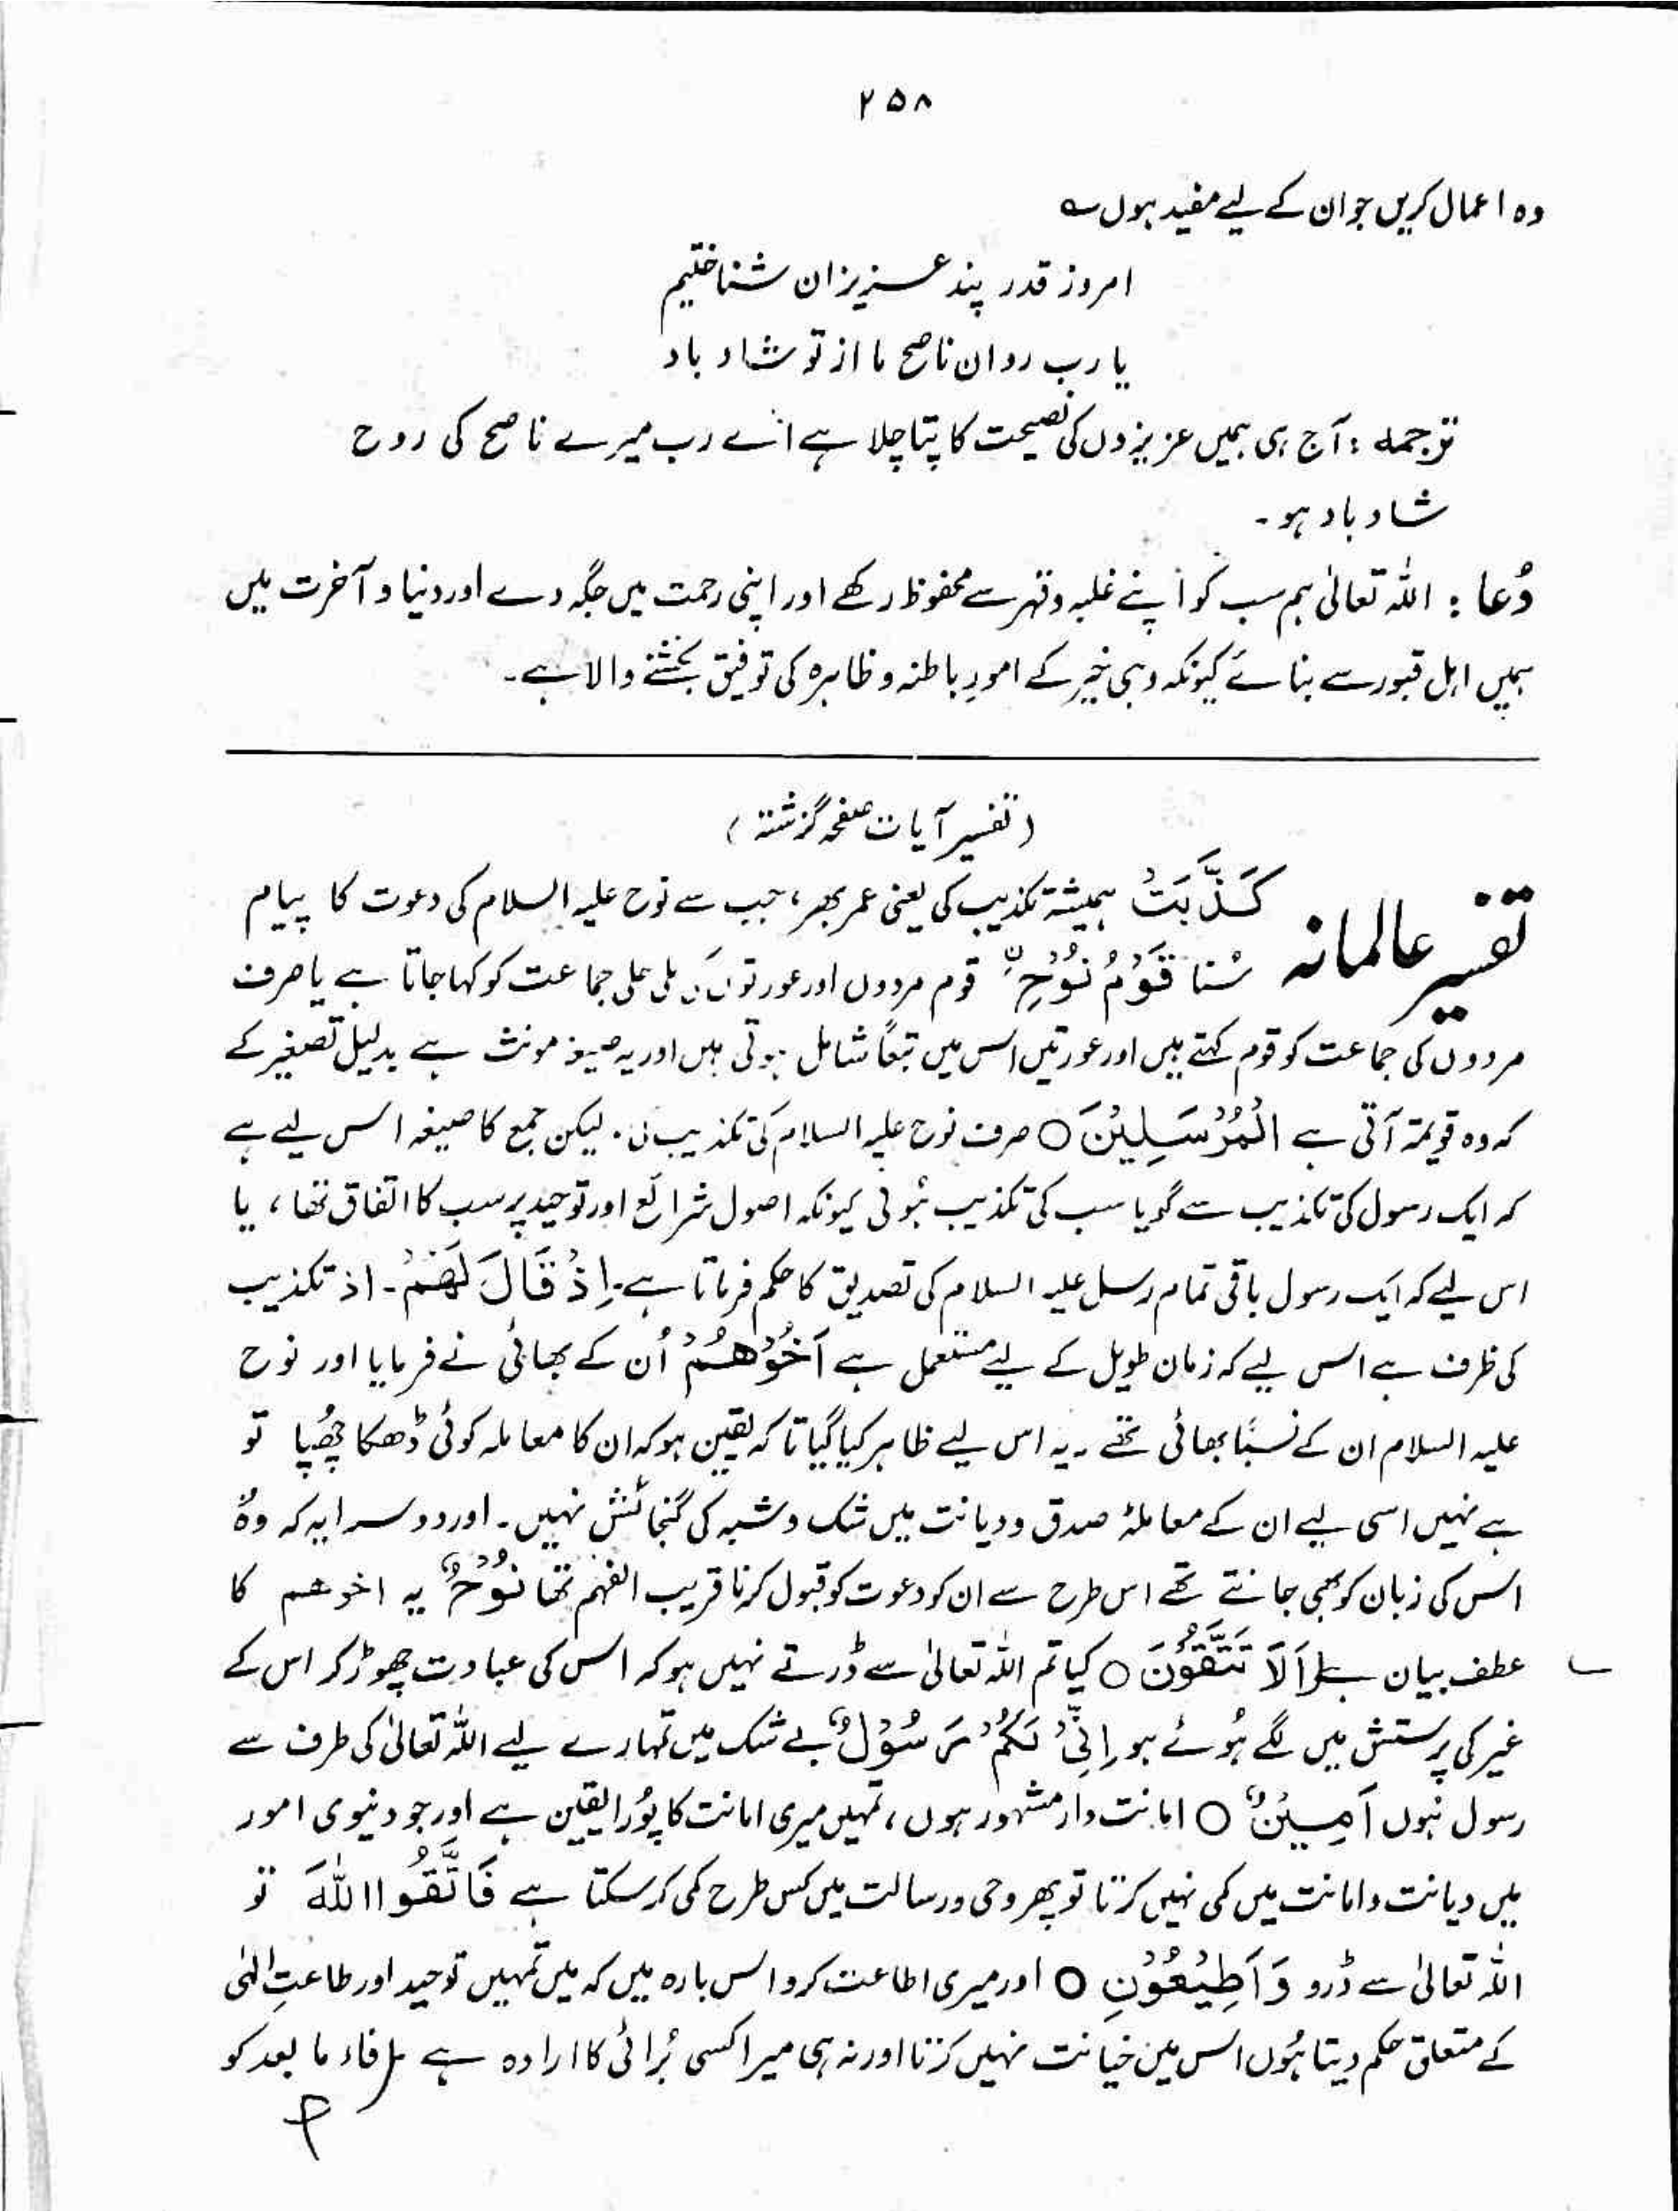 ۲۵۸
وہ اعمال کریں جو ان کے لیے مفید ہوں ؎
امروز قدر پند عزیزان شناختیم
یا رب روان ناصح ما از تو شاد باد
ترجمہ : آج ہی ہمیں عزیزوں کی نصیحت کا پتا چلا ہے اے رب میرے ناصح کی روح
شاد باد ہو ۔
دُعا : اللہ تعالیٰ ہم سب کو اپنے غلبہ و قہر سے محفوظ رکھے اور اپنی رحمت میں جگہ دے اور دنیا و آخرت میں
ہمیں اہل قبور سے بنائے کیونکہ وہی خیر کے امورِ باطنہ و ظاہرہ کی توفیق بخشنے والا ہے ۔
( تفسیر آیات صفحہ گزشتہ )
تفسیر عالمانہ كَذَّبَتْ ہمیشہ تکذیب کی یعنی عمر بھر ، جب سے نوح علیہ السلام کی دعوت کا پیام
سُنا قَوْمُ نُوْحِ ۨ قوم مردوں اور عورتوں کی ملی جلی جماعت کو کہا جاتا ہے یا صرف
مردوں کی جماعت کو قوم کہتے ہیں اور عورتیں اس میں تبعاً شامل ہوتی ہیں اور یہ صیغہ مونث ہے بدلیل تصغیر کے
کہ وہ قویمۃ آتی ہے الْمُرْسَلِيْنَ ○ صرف نوح علیہ السلام کی تکذیب کی ۔ لیکن جمع کا صیغہ اس لیے ہے
کہ ایک رسول کی تکذیب سے گویا سب کی تکذیب ہُوئی کیونکہ اصول شرائع اور توحید پر سب کا اتفاق تھا ، یا
اس لیے کہ ایک رسول باقی تمام رسل علیہ السلام کی تصدیق کا حکم فرماتا ہے ۔ اِذْ قَالَ لَهُمْ ۔ اذ تکذیب
کی ظرف ہے اس لیے کہ زمان طویل کے لیے مستعمل ہے اَخُوْهُمْ اُن کے بھائی نے فرمایا اور نوح
علیہ السلام ان کے نسبًا بھائی تھے ۔ یہ اس لیے ظاہر کیا گیا تاکہ یقین ہو کہ ان کا معاملہ کوئی ڈھکا چُھپا تو
ہے نہیں اسی لیے ان کے معاملۂ صدق و دیانت میں شک و شبہ کی گنجائش نہیں ۔ اور دوسرا یہ کہ وہ
اس کی زبان کو بھی جانتے تھے اس طرح سے ان کو دعوت کو قبول کرنا قریب الفہم تھا نُوْحٌ یہ اخوھم کا
عطف بیان ہے اَلَا تَتَّقُوْنَ ○ کیا تم اللہ تعالیٰ سے ڈرتے نہیں ہو کہ اس کی عبادت چھوڑ کر اس کے
غیر کی پرستش میں لگے ہُوئے ہو اِنِّيْ لَكُمْ رَسُوْلٌ بے شک میں تمہارے لیے اللہ تعالیٰ کی طرف سے
رسول ہُوں اَمِيْنٌ ○ امانت دار مشہور ہوں ، تمہیں میری امانت کا پُورا یقین ہے اور جو دنیوی امور
میں دیانت و امانت میں کمی نہیں کرتا تو پھر وحی و رسالت میں کس طرح کمی کر سکتا ہے فَاتَّقُوا اللّٰهَ تو
اللہ تعالیٰ سے ڈرو وَ اَطِيْعُوْنِ ○ اور میری اطاعت کرو اس بارہ میں کہ میں تمہیں توحید اور طاعتِ الٰہی
کے متعلق حکم دیتا ہُوں اس میں خیانت نہیں کرتا اور نہ ہی میرا کسی بُرائی کا ارادہ ہے فاء ما بعد کو